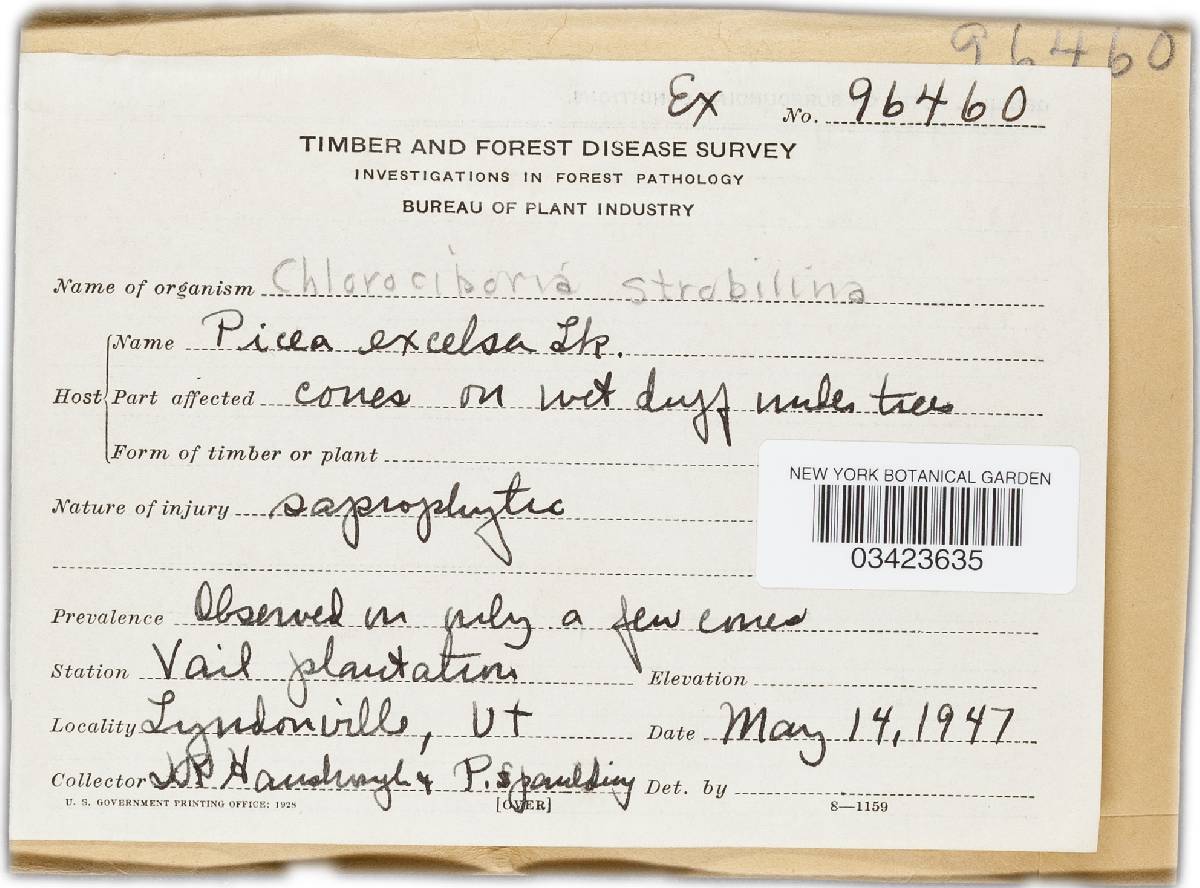 96460
Ex No. 96460
TIMBER AND FOREST DISEASE SURVEY
INVESTIGATIONS IN FOREST PATHOLOGY
BUREAU OF PLANT INDUSTRY
Name of organism Chlorociboria strobilina
Host Name Picea excelsa Lk.
Part affected cones on wet duff under trees
Form of timber or plant
NEW YORK BOTANICAL GARDEN
03423635
Nature of injury saprophytic
Prevalence Observed on only a few cones
Station Vail plantation Elevation
Locality Lyndonville, Vt Date May 14, 1947
Collector & P. Spaulding Det. by
U. S. GOVERNMENT PRINTING OFFICE: 1928 [OVER] 8—1159